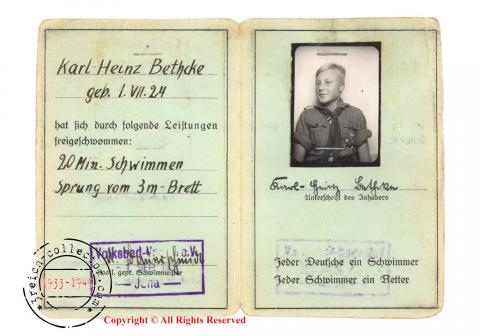 Karl-Heinz Bethcke
geb. 1. VII. 24
hat sich durch folgende Leistungen
freigeschwommen:
20 Min. Schwimmen
Sprung vom 3m-Brett
Volksbad e.V.
Staatl. gepr. Schwimmeister
Jena
Karl-Heinz Bethcke
Unterschrift des Inhabers
Jeder Deutsche ein Schwimmer
Jeder Schwimmer ein Retter
Copyright © All Rights Reserved